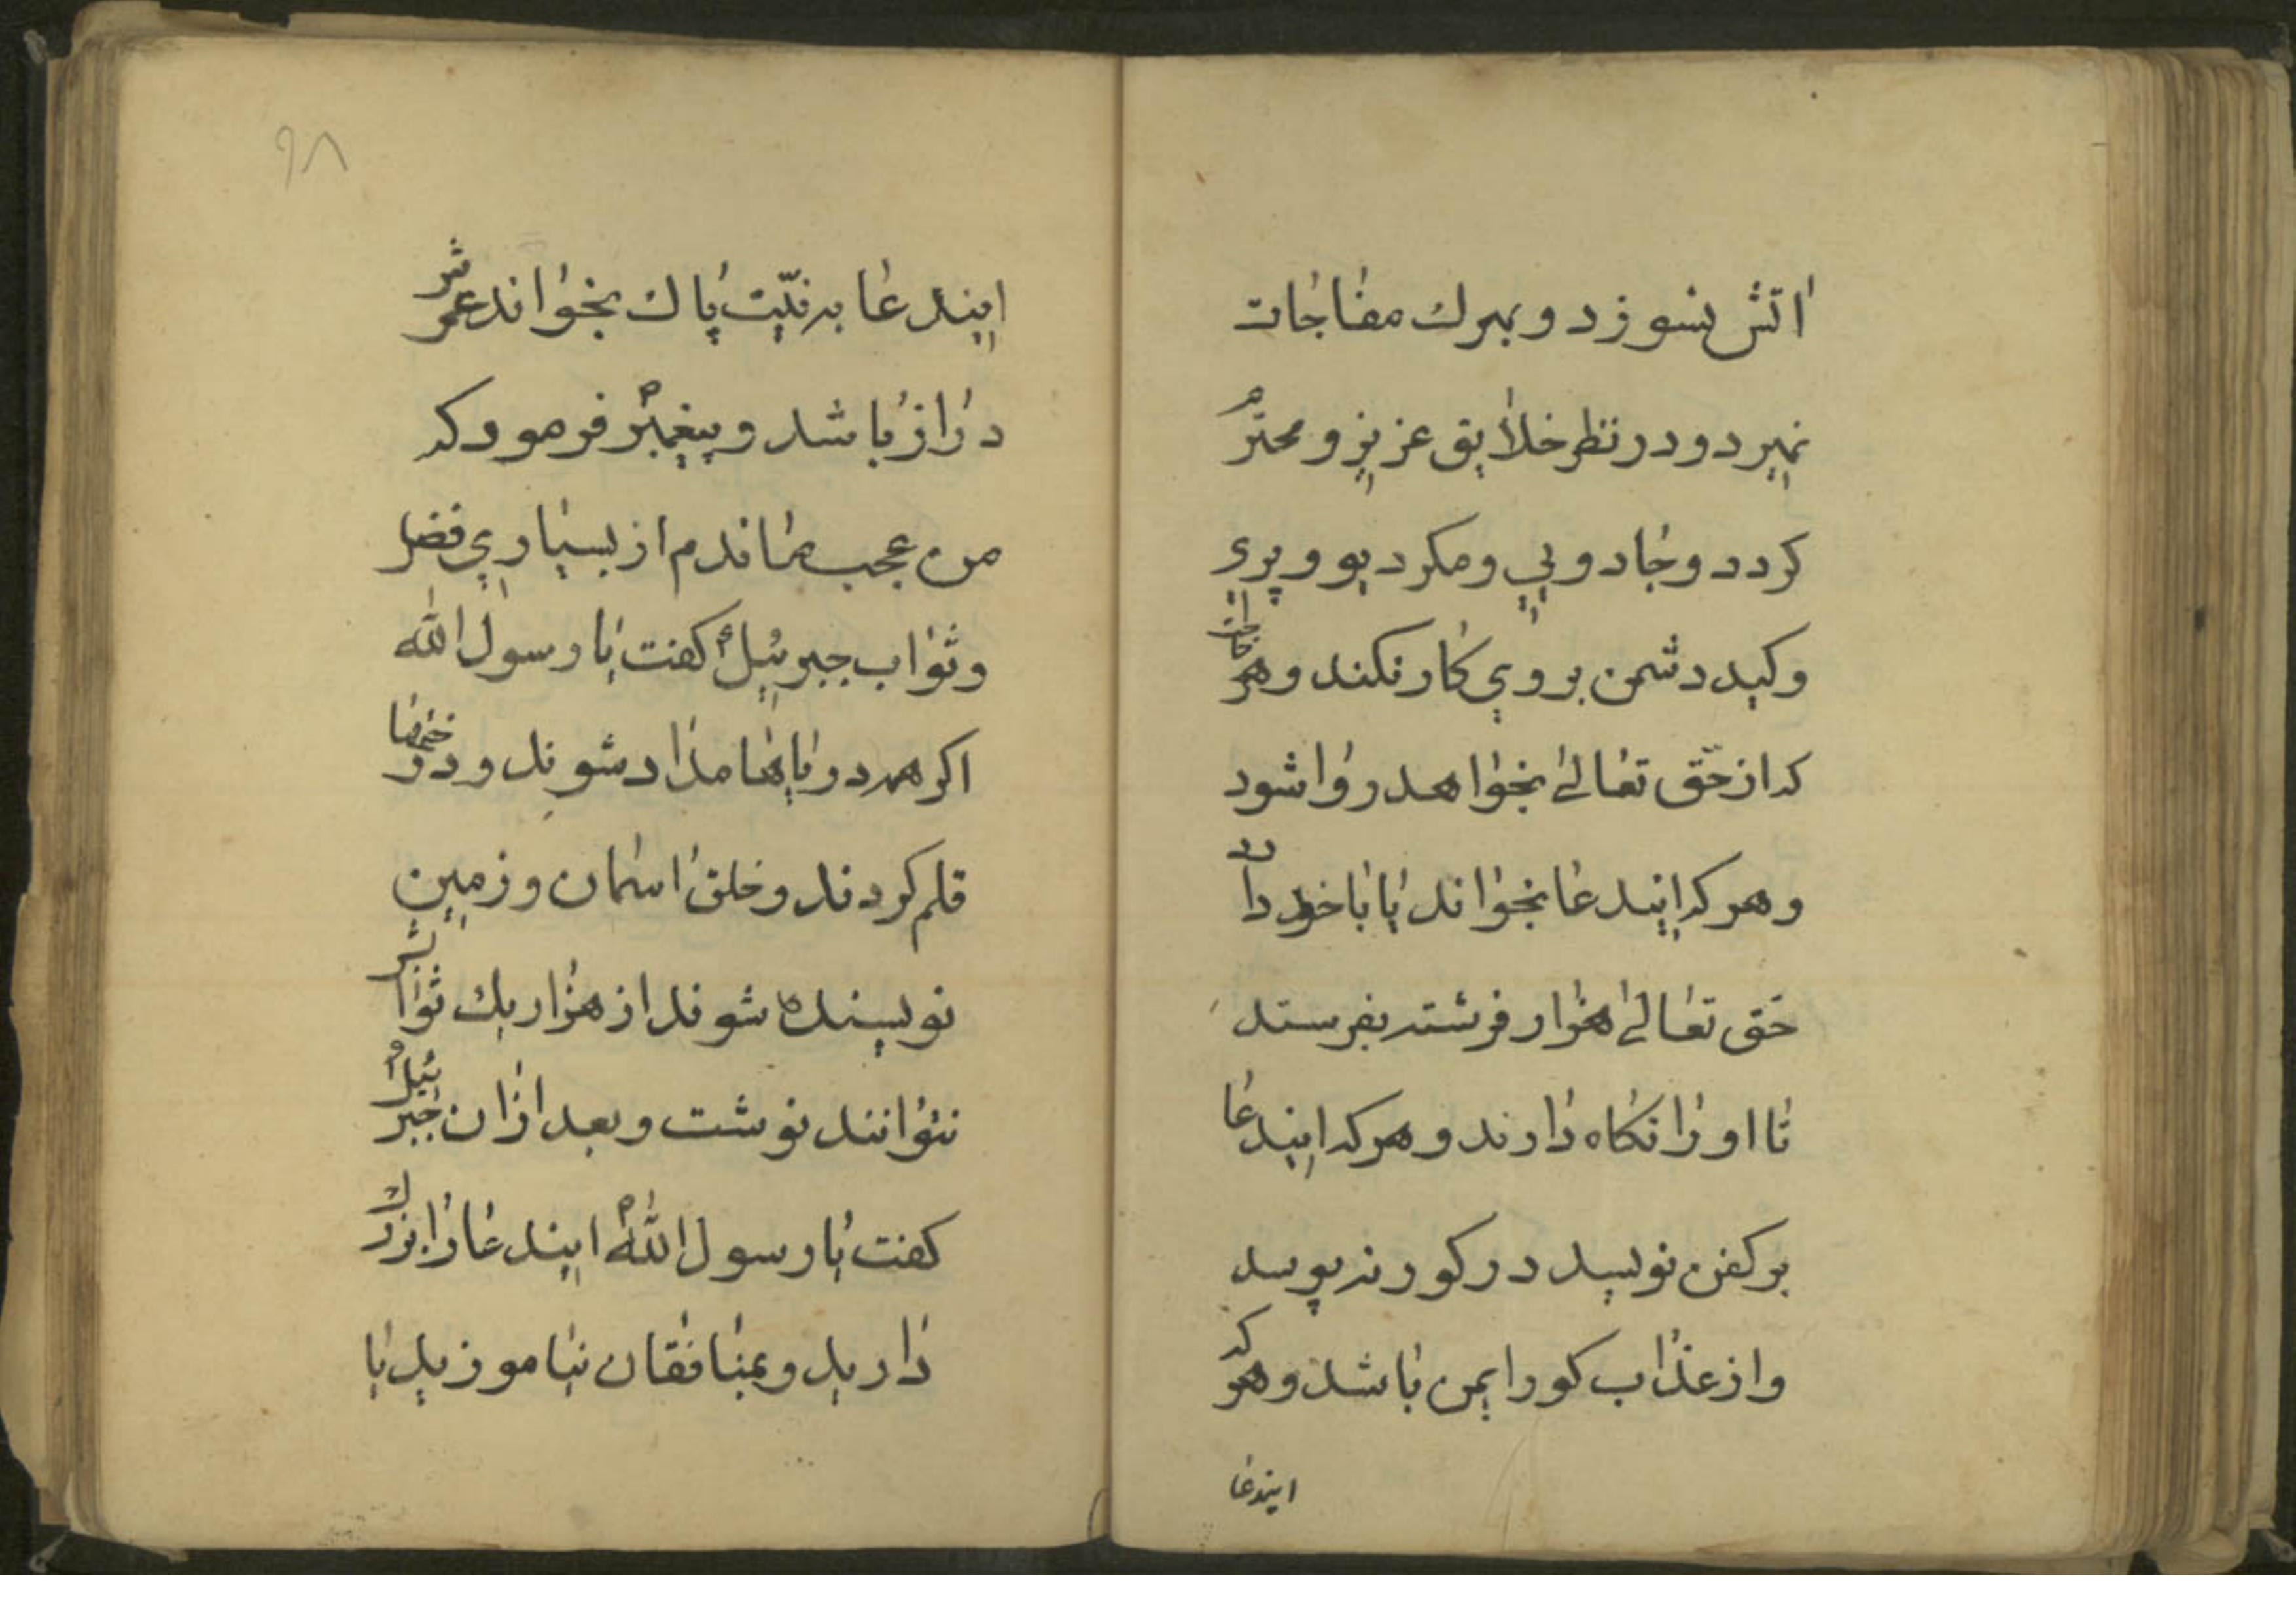 اتش نسوزد و بمرك مفاجات
نمیرد و در نظر خلایق عزیز و محترم
كردد و جادویی و مكر دیو و پری
و كید دشمن بر وی كار نكند و هر حاجت
كه از حق تعالی بخواهد روا شود
و هر كه ایندعا بخواند یا با خود دارد
حق تعالی هزار فرشته بفرستد
تا او را نكاه دارند و هر كه ایندعا
بر كفن نویسد در كور نه پوسد
و از عذاب كور ایمن باشد و هر كه
ایندعا
۹۸
ایندعا به نیّت پاك بخواند عمرش
دراز باشد و پیغمبر فرمود كه
من عجب بماندم از بسیاری فضل
و ثواب جبرئیل كفت یا رسول الله
اكر همه دریاها مداد شوند و درختها
قلم كردند و خلق اسمان و زمین
نویسنده شوند از هزار یك ثوابش
نتوانند نوشت و بعد ازان جبرئیل
كفت یا رسول الله ایندعا را بزرك
دارید و بمنافقان نیاموزید یا